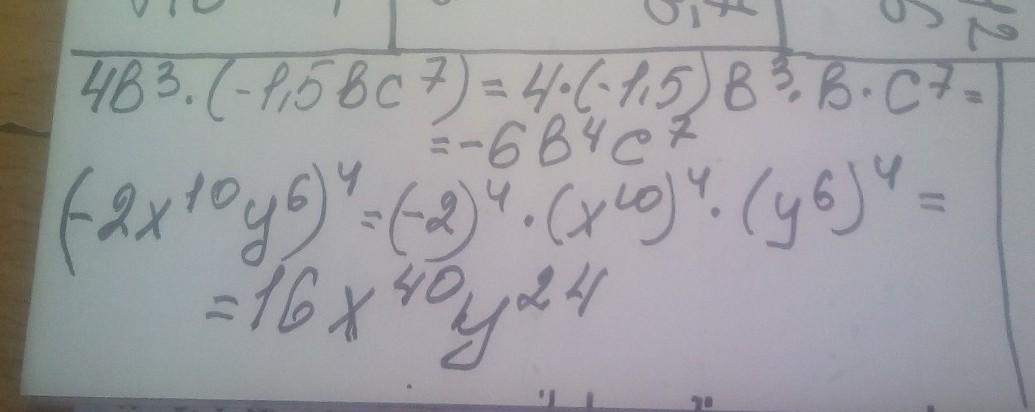 4в³·(-1,5вс⁷)=4·(-1,5)в³·в·с⁷=
=-6в⁴с⁷
(-2x¹⁰y⁶)⁴=(-2)⁴·(x¹⁰)⁴·(y⁶)⁴=
=16x⁴⁰y²⁴